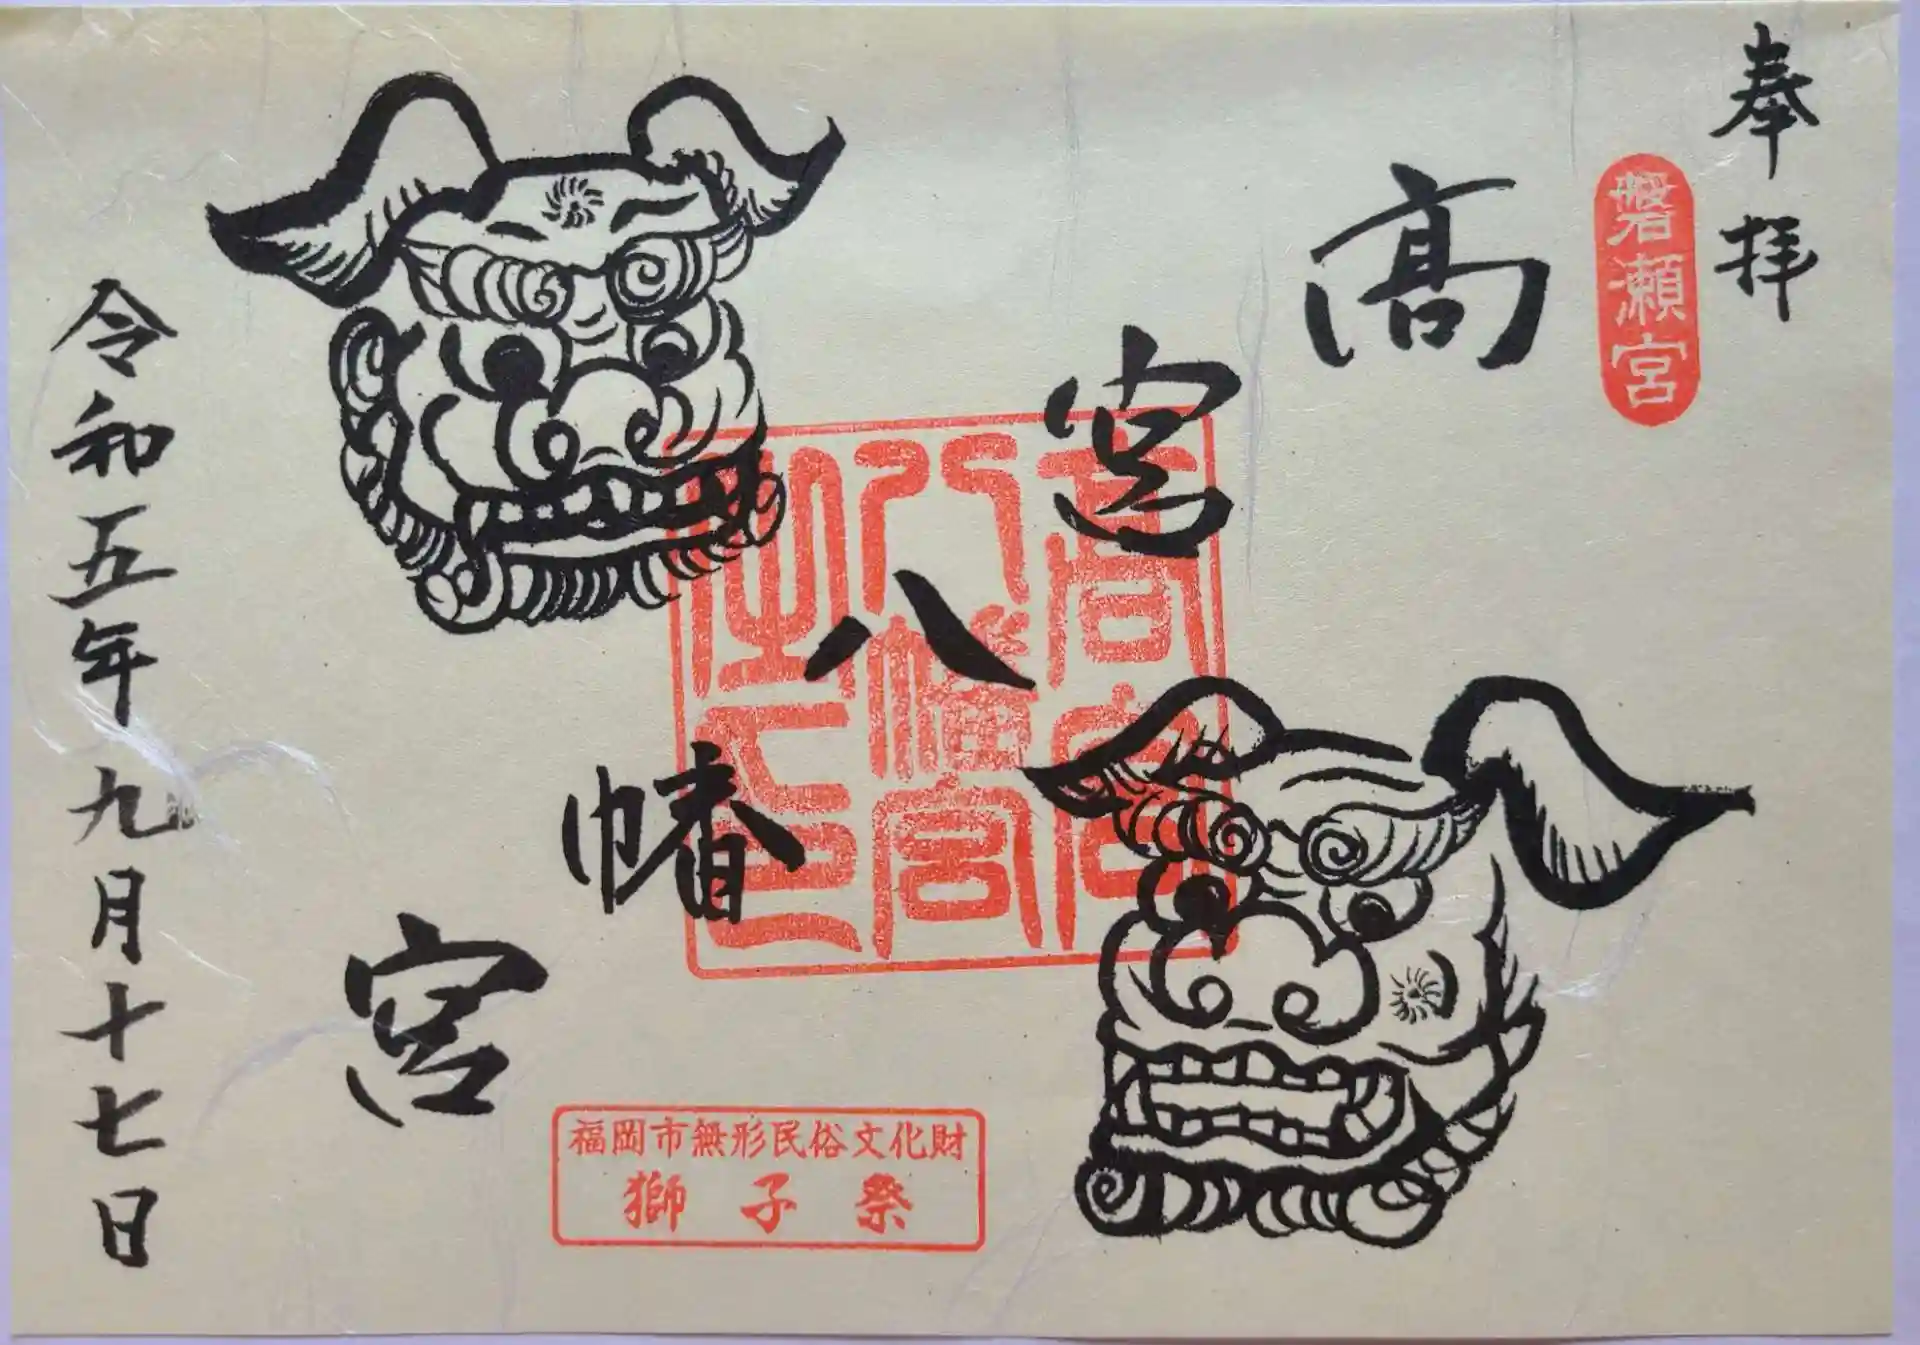 奉拝
磐瀬宮
高宮八幡宮
高宮
八幡宮
之印
令和五年九月十七日
福岡市無形民俗文化財
獅子祭